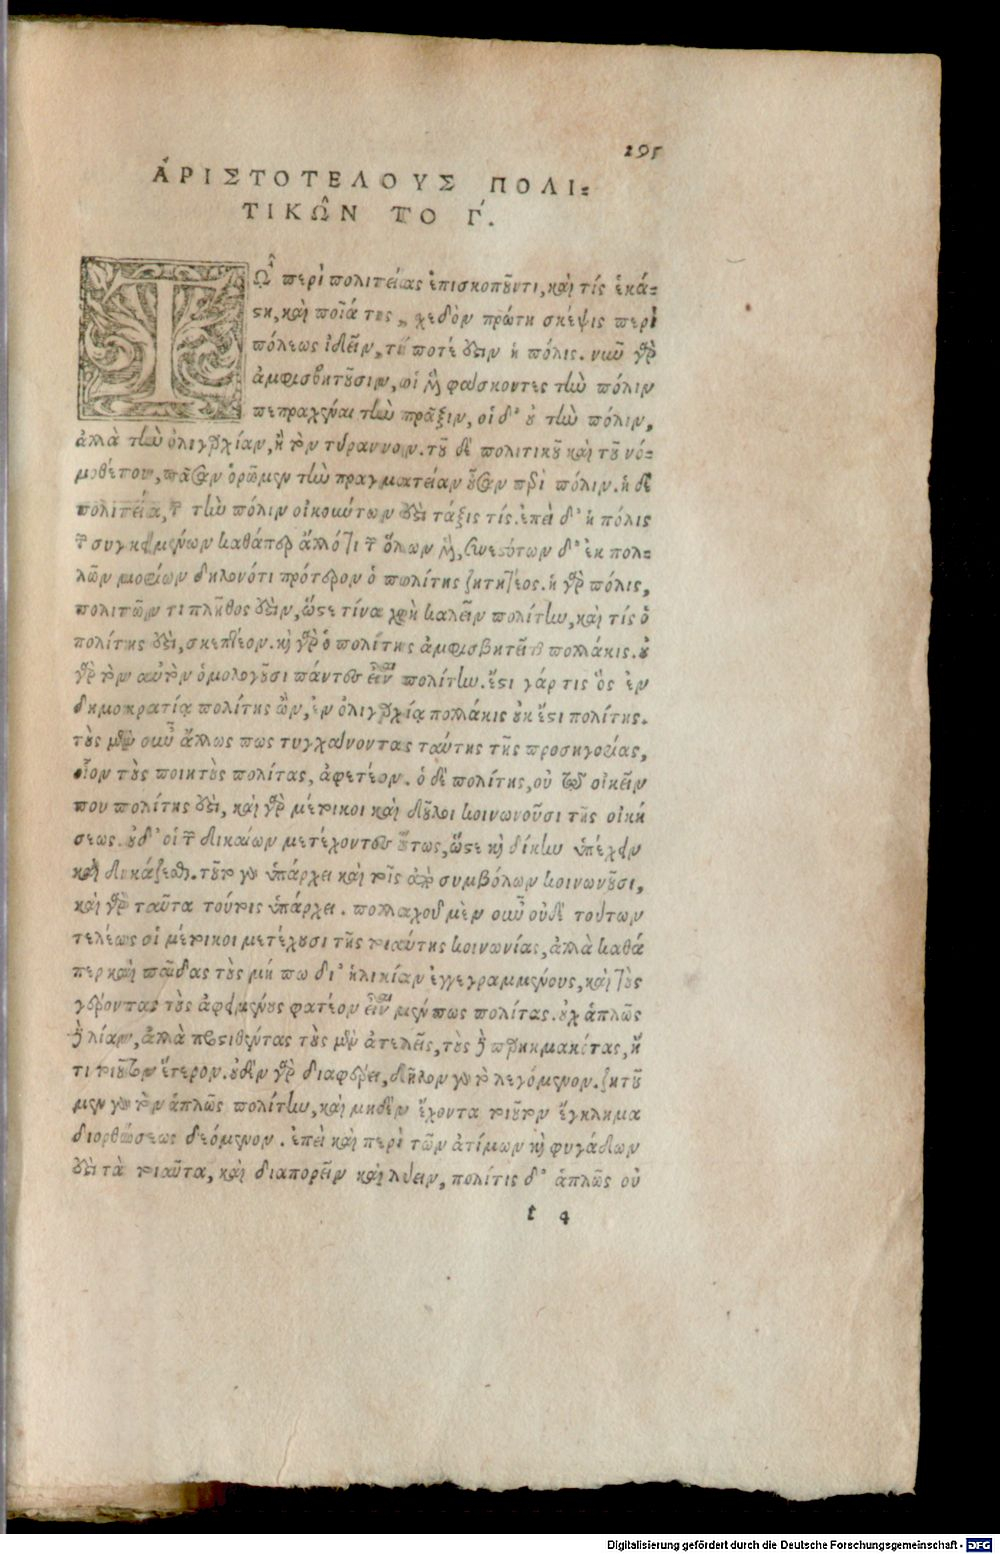 295
ἈΡΙΣΤΟΤΕΛΟΥΣ ΠΟΛΙ=
ΤΙΚΩ͂Ν ΤΟ Γ΄.
ΤΩ͂ περὶ πολιτείας ἐπισκοποῦντι, καὶ τίς ἑκά=
στη, καὶ ποῖά τις, σχεδὸν πρώτη σκέψις περὶ
πόλεως ἰδεῖν, τί ποτέ ἐστιν ἡ πόλις. νῦν γὰρ
ἀμφισβητοῦσιν, οἱ μὲν φάσκοντες τὴν πόλιν
πεπραχέναι τὴν πρᾶξιν, οἱ δ' οὐ τὴν πόλιν,
ἀλλὰ τὴν ὀλιγαρχίαν, ἢ τὸν τύραννον. τοῦ δὲ πολιτικοῦ καὶ τοῦ νο=
μοθέτου, πᾶσαν ὁρῶμεν τὴν πραγματείαν οὖσαν περὶ πόλιν. ἡ δὲ
πολιτεία, τῶν τὴν πόλιν οἰκούντων ἐστὶ τάξις τίς. ἐπεὶ δ' ἡ πόλις
τῶν συγκειμένων καθάπερ ἄλλό τι τῶν ὅλων μὲν, συνεστότων δ' ἐκ πολ=
λῶν μορίων δηλονότι πρότερον ὁ πολίτης ζητητέος. ἡ γὰρ πόλις,
πολιτῶν τι πλῆθος ἐστὶν, ὥστε τίνα χρὴ καλεῖν πολίτην, καὶ τίς ὁ
πολίτης ἐστὶ, σκεπτέον. καὶ γὰρ ὁ πολίτης ἀμφισβητεῖται πολλάκις. οὐ
γὰρ τὸν αὐτὸν ὁμολογοῦσι πάντες εἶναι πολίτην. ἔστι γάρ τις ὃς ἐν
δημοκρατίᾳ πολίτης ὢν, ἐν ὀλιγαρχίᾳ πολλάκις οὐκ ἔστι πολίτης.
τοὺς μὲν οὖν ἄλλως πως τυγχάνοντας ταύτης τῆς προσηγορίας,
οἷον τοὺς ποιητοὺς πολίτας, ἀφετέον. ὁ δὲ πολίτης, οὐ τῷ οἰκεῖν
που πολίτης ἐστὶ, καὶ γὰρ μέτοικοι καὶ δοῦλοι κοινωνοῦσι τῆς οἰκή
σεως. οὐδ' οἱ τῶν δικαίων μετέχοντες οὕτως, ὥστε καὶ δίκην ὑπέχειν
καὶ δικάζεσθαι. τοῦτο γὰρ ὑπάρχει καὶ τοῖς ἀπὸ συμβόλων κοινωνοῦσι,
καὶ γὰρ ταῦτα τούτοις ὑπάρχει. πολλαχοῦ μὲν οὖν οὐδὲ τούτων
τελέως οἱ μέτοικοι μετέχουσι τῆς τοιαύτης κοινωνίας, ἀλλὰ καθά
περ καὶ παῖδας τοὺς μή πω δι' ἡλικίαν ἐγγεγραμμένους, καὶ τοὺς
γέροντας τοὺς ἀφειμένους φατέον εἶναι μέν πως πολίτας. οὐχ ἁπλῶς
δὲ λίαν, ἀλλὰ προστιθέντας τοὺς μὲν ἀτελεῖς, τοὺς δὲ παρηκμακότας, ἤ
τι τοιοῦτον ἕτερον. οὐδὲν γὰρ διαφέρει, δῆλον γὰρ τὸ λεγόμενον. ζητοῦ
μεν γὰρ τὸν ἁπλῶς πολίτην, καὶ μηδὲν ἔχοντα τοιοῦτον ἔγκλημα
διορθώσεως δεόμενον. ἐπεὶ καὶ περὶ τῶν ἀτίμων καὶ φυγάδων
ἐστὶ τὰ τοιαῦτα, καὶ διαπορεῖν καὶ λύειν, πολίτις δ' ἁπλῶς οὐ
t 4
Digitalisierung gefördert durch die Deutsche Forschungsgemeinschaft - DFG